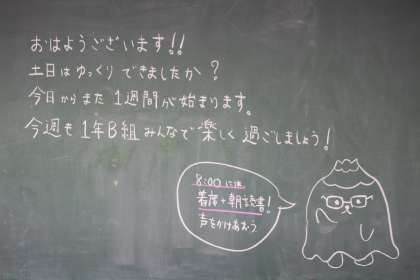 おはようございます!!
土日はゆっくりできましたか?
今日からまた1週間が始まります。
今週も1年B組みんなで楽しく過ごしましょう!
8:00には
着席+朝読書!
声をかけあおう